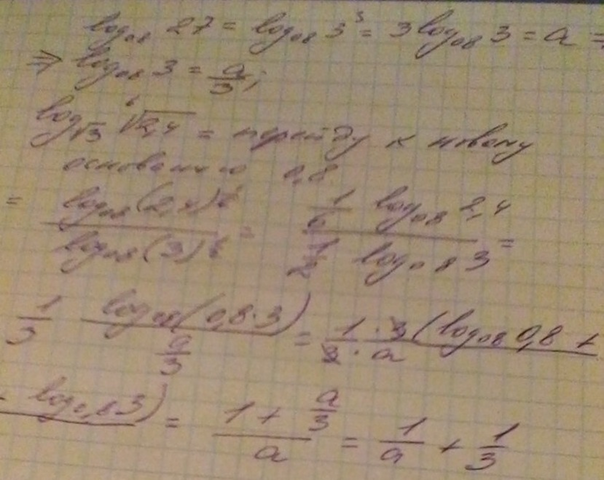 log₀,₈ 27 = log₀,₈ 3³ = 3 log₀,₈ 3 = a =
⇒ log₀,₈ 3 = a/3;
log_√3 ⁶√2,4 = перейду к новому
основанию 0,8
= log₀,₈(2,4)^(1/6) / log₀,₈(3)^(1/2) = (1/6 log₀,₈ 2,4) / (1/2 log₀,₈ 3) =
1/3 log₀,₈(0,8·3) / (a/3) = 1·3(log₀,₈ 0,8 + / 3·a
+ log₀,₈ 3) = (1 + a/3) / a = 1/a + 1/3